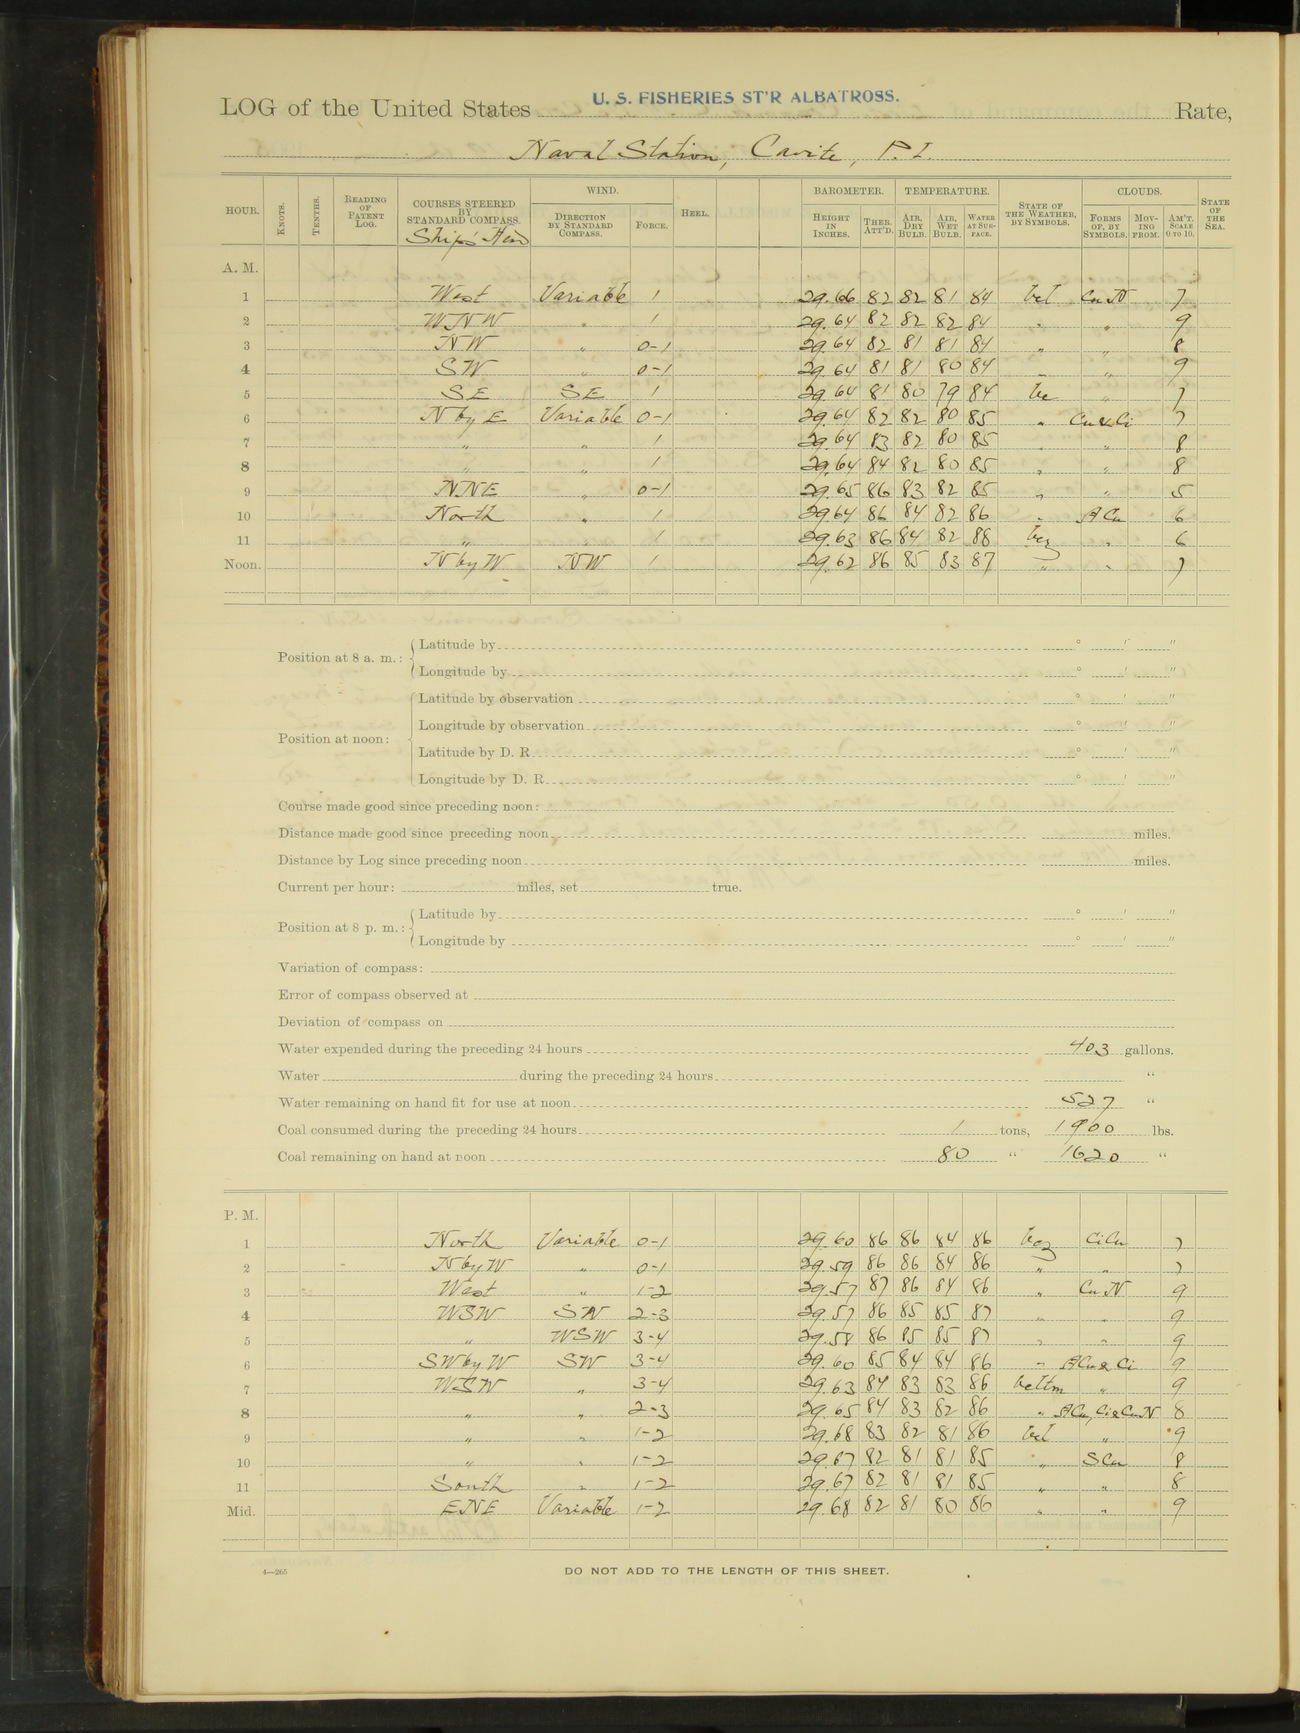 U. S. FISHERIES ST'R ALBATROSS.
LOG of the United States Rate,
Naval Station, Cavite, P. I.
HOUR. KNOTS. TENTHS. READING OF PATENT LOG. COURSES STEERED BY STANDARD COMPASS. Ship's Head WIND. DIRECTION BY STANDARD COMPASS. FORCE. HEEL. BAROMETER. HEIGHT IN INCHES. THER. ATT'D. TEMPERATURE. AIR, DRY BULB. AIR, WET BULB. WATER AT SURFACE. STATE OF THE WEATHER, BY SYMBOLS. CLOUDS. FORMS OF, BY SYMBOLS. MOVING FROM. AM'T. SCALE 0 TO 10. STATE OF THE SEA.
A. M.
1 West Variable 1 29.66 82 82 81 84 bcl CuN 7
2 WNW " 1 29.64 82 82 82 84 " " 9
3 NW " 0-1 29.64 82 81 81 84 " " 8
4 SW " 0-1 29.64 81 81 80 84 " " 9
5 SE SE 1 29.64 81 80 79 84 bc " 7
6 N by E Variable 0-1 29.64 82 82 80 85 " Cu & Ci 7
7 " " 1 29.64 83 82 80 85 " " 8
8 " " 1 29.64 84 82 80 85 " " 8
9 NNE " 0-1 29.65 86 83 82 85 " " 5
10 North " 1 29.64 86 84 82 86 " ACu 6
11 " " 1 29.63 86 84 82 88 bcz " 6
Noon. N by W NW 1 29.62 86 85 83 87 " " 7
Position at 8 a. m.: Latitude by ° ' "
Longitude by ° ' "
Position at noon: Latitude by observation ° ' "
Longitude by observation ° ' "
Latitude by D. R. ° ' "
Longitude by D. R. ° ' "
Course made good since preceding noon:
Distance made good since preceding noon miles.
Distance by Log since preceding noon miles.
Current per hour: miles, set true.
Position at 8 p. m.: Latitude by ° ' "
Longitude by ° ' "
Variation of compass:
Error of compass observed at
Deviation of compass on
Water expended during the preceding 24 hours 403 gallons.
Water during the preceding 24 hours "
Water remaining on hand fit for use at noon 527 "
Coal consumed during the preceding 24 hours 1 tons, 1900 lbs.
Coal remaining on hand at noon 80 " 1620 "
P. M.
1 North Variable 0-1 29.60 86 86 84 86 bcz CiCu 7
2 N by W " 0-1 29.59 86 86 84 86 " " 7
3 West " 1-2 29.57 87 86 84 86 " CuN 9
4 WSW SW 2-3 29.57 86 85 85 87 " " 9
5 " WSW 3-4 29.58 86 85 85 87 " " 9
6 SW by W SW 3-4 29.60 85 84 84 86 " ACu & Ci 9
7 WSW " 3-4 29.63 84 83 83 86 bcltm " 9
8 " " 2-3 29.65 84 83 82 86 " ACu, Ci & CuN 8
9 " " 1-2 29.68 83 82 81 86 bcl " 9
10 " " 1-2 29.67 82 81 81 85 " SCu 8
11 South " 1-2 29.67 82 81 81 85 " " 8
Mid. ENE Variable 1-2 29.68 82 81 80 86 " " 9
4—265
DO NOT ADD TO THE LENGTH OF THIS SHEET.